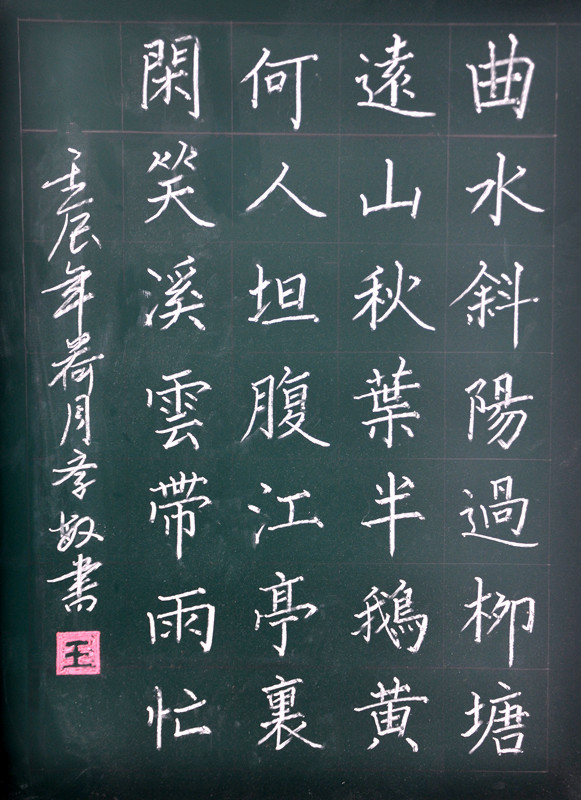 曲水斜陽過柳塘
遠山秋葉半鵝黃
何人坦腹江亭裏
閑笑溪雲帶雨忙
壬辰年荷月孝敏書
王